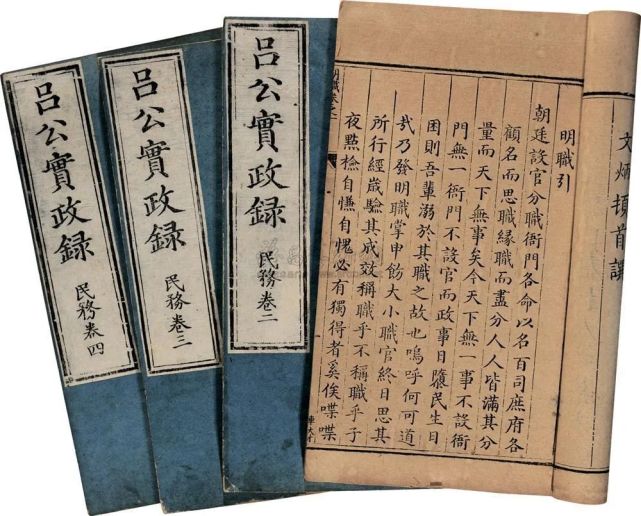 呂公實政録
民務卷四
呂公實政録
民務卷三
呂公實政録
民務卷二
文炳頓首譔
明職引
朝廷設官分職衙門各命以名百司庶府各
顧名而思職緣職而盡分人人皆滿其分
量而天下無事矣今天下無一事不設衙
門無一衙門不設官而政事日隳民生日
困則吾輩溺於其職之故也嗚呼何可道
㢤乃發明職掌申飭大小職官終日思其
所行經歲驗其成效稱職乎不稱職乎子
夜點檢自慊自愧必有獨得者奚俟喋喋